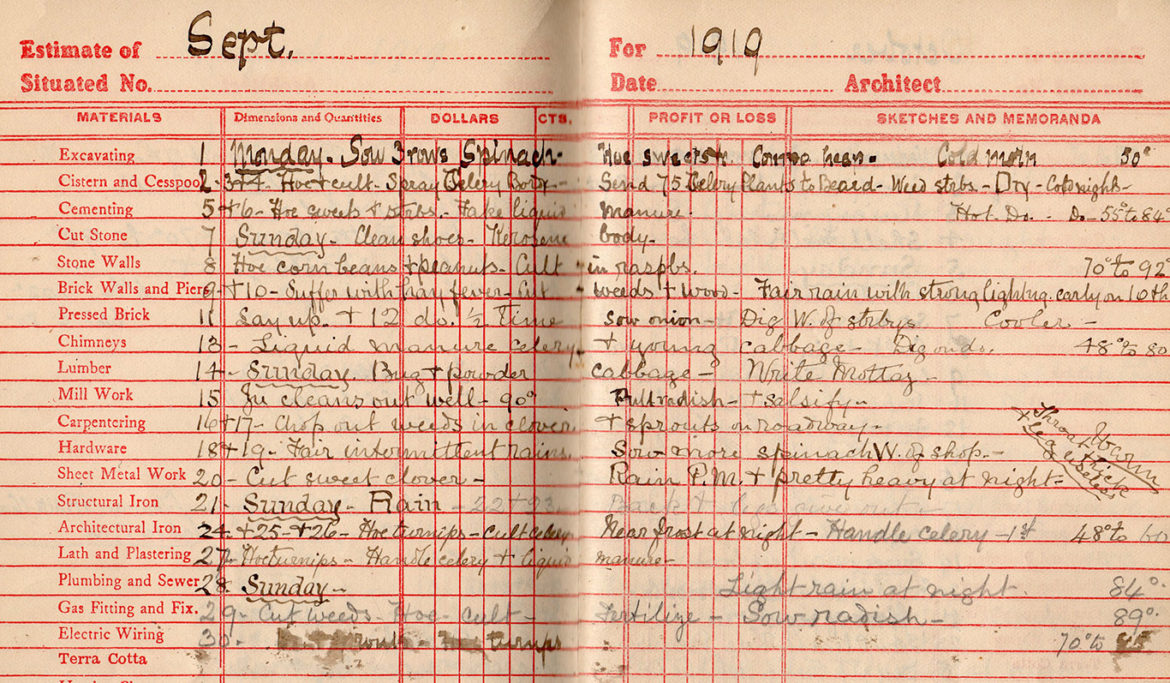 Estimate of Sept. For 1919
Situated No. Date Architect
MATERIALS Dimensions and Quantities DOLLARS CTS. PROFIT OR LOSS SKETCHES AND MEMORANDA
Excavating 1 Monday. Sow 3 rows Spinach. Hoe sweets Cold morn 50°
Cistern and Cesspool 2- 3+4- Hoe + cult- Spray Celery Bordx- Send 75 Celery Plants to Beard- Weed strbs.- Dry- Cold nights-
Cementing 5+6- Hoe sweets + strbs.- Take liquid manure. Hot Do. - Do- 55° to 84
Cut Stone 7 Sunday- Clean shoes- Kerosene body-
Stone Walls 8 Hoe corn beans + peanuts- Cult in raspbs. 70° to 92°
Brick Walls and Piers 9-+10- Suffer with hay fever- Cut weeds + wood- Fair rain with strong lighting. early on 10th
Pressed Brick 11 Lay up. + 12 do. ½ Time Sow onion- Dig W. of strbys Cooler-
Chimneys 13- Liquid manure celery + young cabbage- Dig onds. 48° to 80
Lumber 14- Sunday. Bug + powder cabbage- Write Mottaz-
Mill Work 15 Ju cleans out well- 90° Pull radish- + salsify-
Carpentering 16+17- Chop out weeds in clover + sprouts on roadway-
Hardware 18+19- Fair intermittent rains. Sow more spinach W. of shop.-
Throat thick + Leg useless
Warm
Sheet Metal Work 20- Cut sweet clover- Rain P.M. + pretty heavy at night-
Structural Iron 21- Sunday- Rain- 22+23. Back + legs give out-
Architectural Iron 24-+25-+26- Hoe turnips- cult celery Near frost at night- Handle celery-1st 48° to 60
Lath and Plastering 27- Hoe turnips- Handle celery + liquid manure-
Plumbing and Sewer 28- Sunday- Light rain at night. 84°-
Gas Fitting and Fix. 29- Cut weeds Hoe- cult- Fertilize- Sow radish- 89°
Electric Wiring 30- turnips 70° to
Terra Cotta